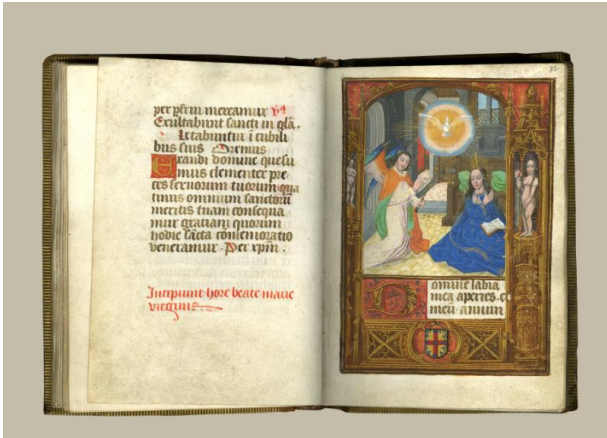 per xpm mereamur
Exultabunt sancti in gla.
Letabuntur i cubili
bus suis Oremus
Exaudi domine quesu
mus clementer pre
ces servorum tuorum qua
tinus omnium sanctorū
meritis tuam consequa
mur graciam quorum
hodie sācta comemoratio
veneramur. Per xpm.
Incipiunt hore beate marie
virginis
Domine labia
mea aperies. et
meū annun